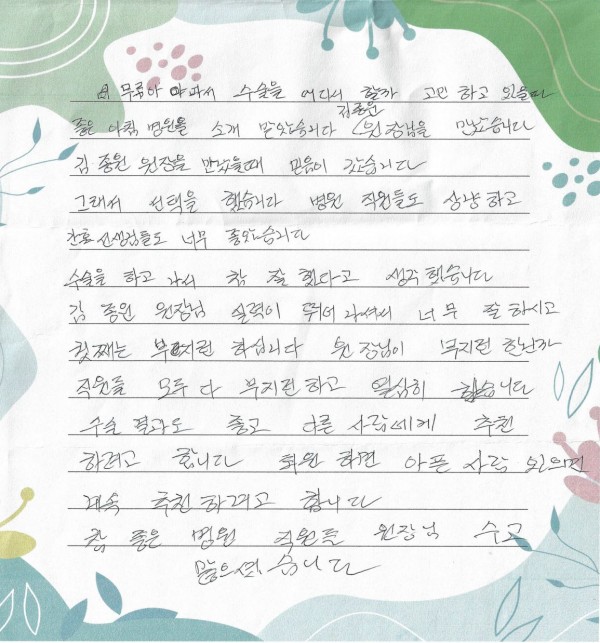 무릎이 아파서 수술을 어디서 할까 고민 하고 있을때
좋은 아침 병원을 소개 받았습니다 김종원 원장님을 만났습니다
김 종원 원장을 만났을때 믿음이 갔습니다
그래서 선택을 했습니다 병원 직원들도 상냥하고
간호 선생님들도 너무 좋았습니다
수술을 하고 나서 참 잘 했다고 생각 했습니다
김 종원 원장님 실력이 뛰어 나셔서 너무 잘 하시고
첫째는 부지런 하십니다 원장님이 부지런 한닌까
직원들 모두 다 부지런 하고 열심히 했습니다
수술 결과도 좋고 다른 사람에게 추천
하려고 합니다 회원 하면 아픈 사람 있으면
계속 추천 하려고 합니다
참 좋은 병원 직원들 원장님 수고
많으셨습니다